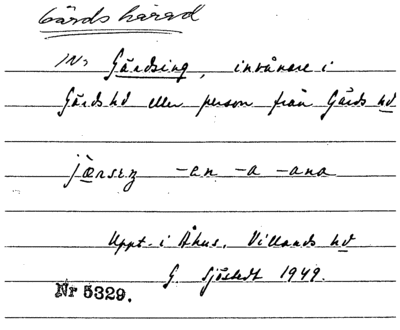 Gärds härad
INr Gärdsing, invånare i
Gärds hd eller person från Gärds hd
jærsɪŋ -an -a -ana
Uppt. i Åhus, Villands hd
G. Sjöstedt 1949.
Nr 5329.